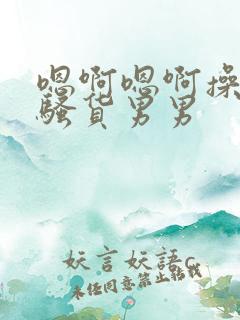 嗯啊嗯啊操
骚货男男
妖言妖語c
未任同意禁止転載